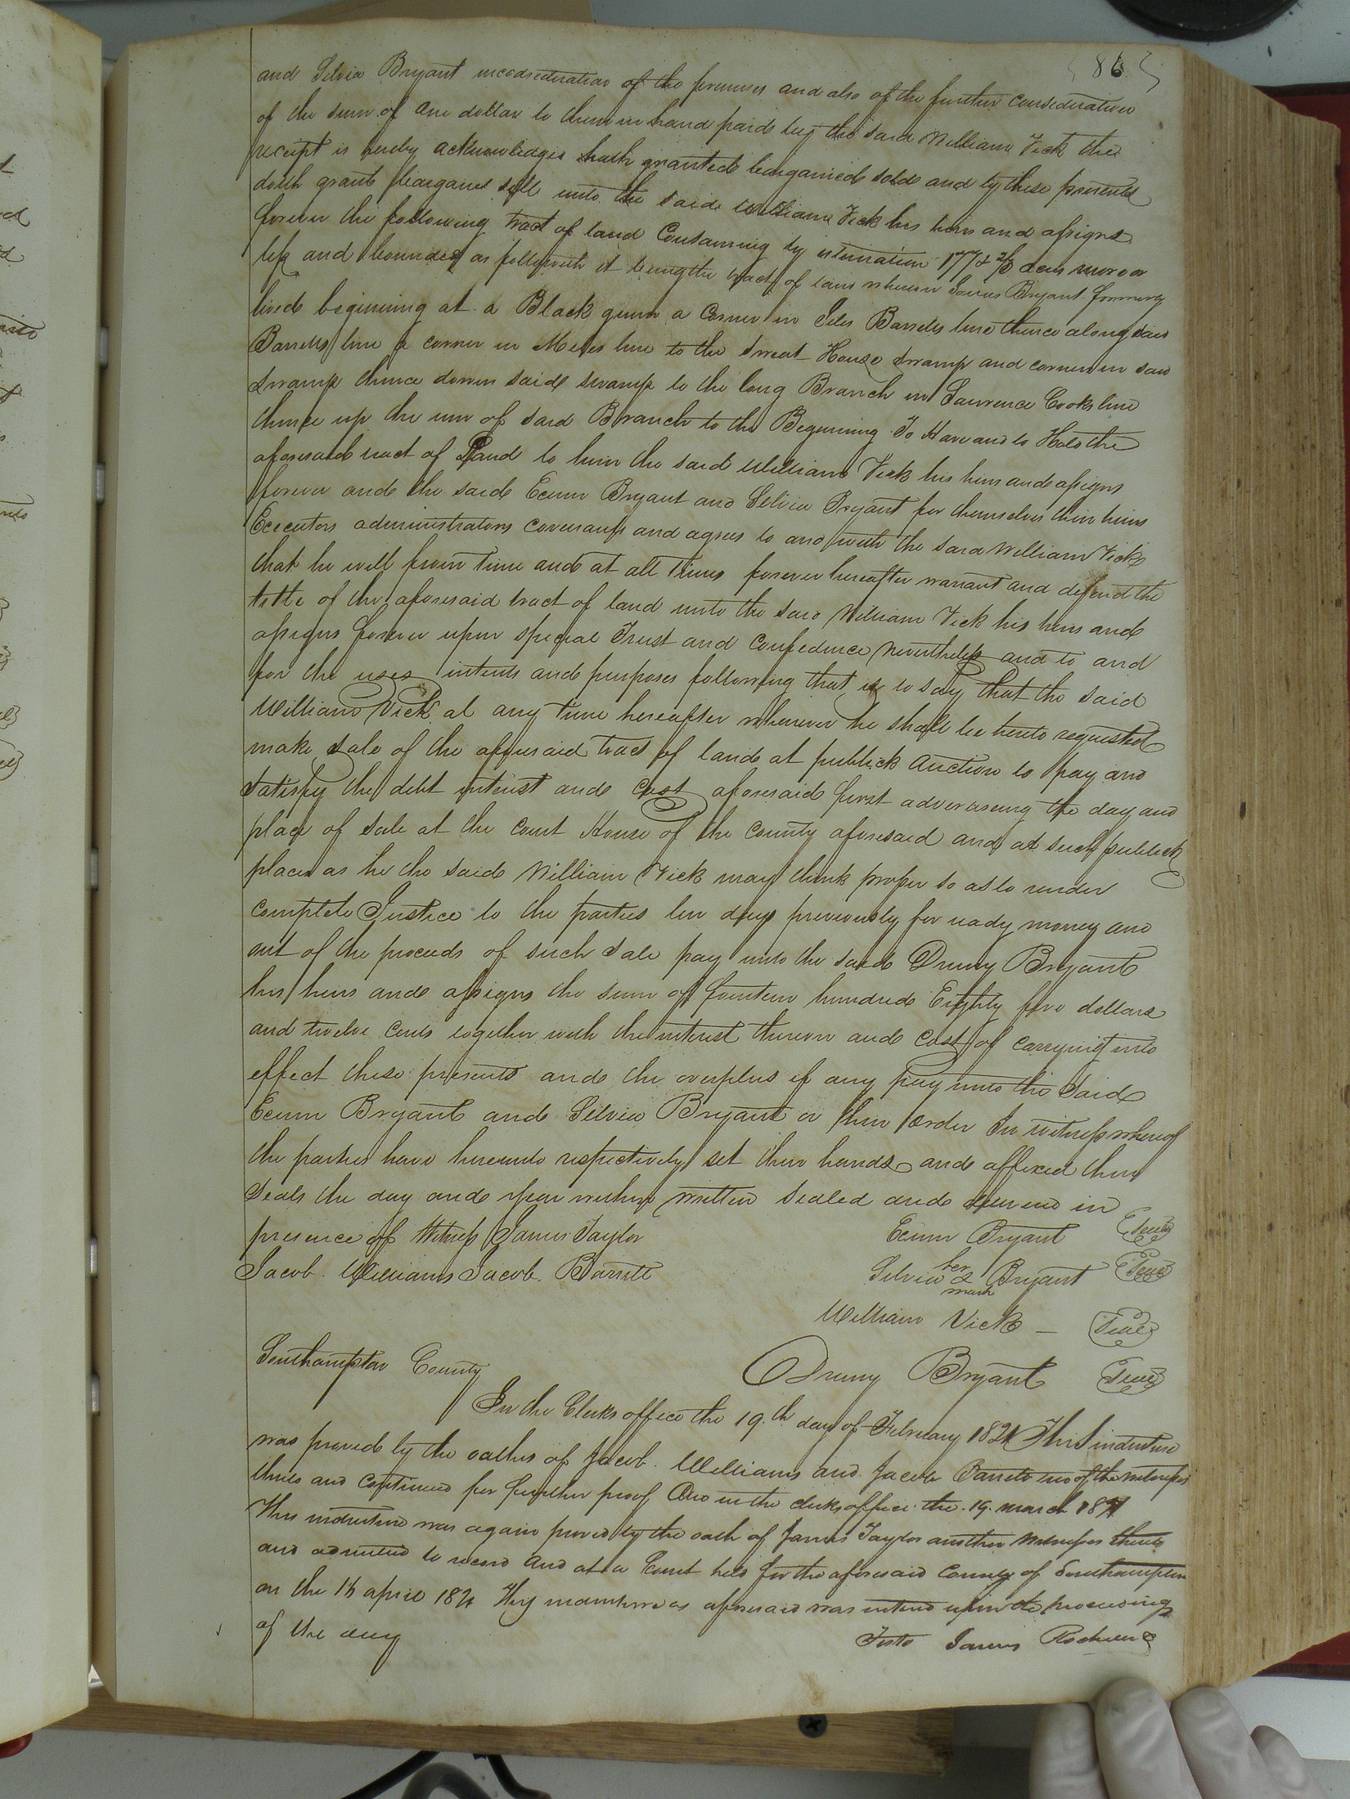 86
and Silvia Bryant inconsideration of the premises and also of the further consideration
of the sum of one dollar to them in hand paid by the said William Vick the
receipt is hereby acknowledges hath granted bargained sold and by these presents
doth grant bargained sell unto the said William Vick his heirs and assigns
forever the following tract of land Containing by estimation 177 acres more or
less and bounded as followeth it being the tract of land whereon James Bryant formerly
lived beginning at a Black gum a Corner in Jiles Barretts line thence along said
Barretts line a corner in line to the Sweat House Swamp and corner in said
Swamp thence down said swamp to the long Branch in Lawrence Cooks line
thence up the run of said Branch to the Beginning To Have and to Hold the
aforesaid tract of Land to him the said William Vick his heirs and assigns
forever and the said Exum Bryant and Silvia Bryant for themselves their heirs
Executors administrators covenants and agrees to and with the said William Vick
that he will from time and at all Times forever hereafter warrant and defend the
title of the aforesaid tract of land unto the said William Vick his heirs and
assigns forever upon special Trust and Confidence nevertheless and to and
for the uses intents and purposes following that is to say that the said
William Vick at any time hereafter whenever he shall be hereto requested
make Sale of the aforesaid tract of land at publick Auction to pay and
Satisfy the debt interest and cost aforesaid first adverseing the day and
place of sale at the Court House of the County aforesaid and at such publick
places as he the said William Vick may think proper so as to render
complete Justice to the parties ten days previously for ready money and
out of the proceeds of such Sale pay unto the said Drury Bryant
his heirs and assigns the sum of fourteen hundred Eighty five dollars
and twelve cents together with the interest thereon and cost of carrying into
effect these presents and the overplus if any pay unto the Said
Exum Bryant and Silvia Bryant or their order In witness whereof
the parties have hereunto respectively set their hands and affixed their
Seals the day and year within written Sealed and delivered in
presence of Witness James Taylor Exum Bryant Seal
Jacob Williams Jacob Barrett Silvia her mark Bryant Seal
William Vick Seal
Southampton County Drury Bryant Seal
In the Clerks office the 19th day of February 1821 This indenture
was proved by the oathes of Jacob Williams and Jacob Barrett two of the witnesses
thereto and continued for further proof And in the clerks office the 19 march 1821
This indenture was again proved by the oath of James Taylor another witness thereto
and admitted to record And at a Court held for the aforesaid County of Southampton
on the 16 april 1821 This indenture as aforesaid was entered upon the proceedings
of the day Teste James Rochelle